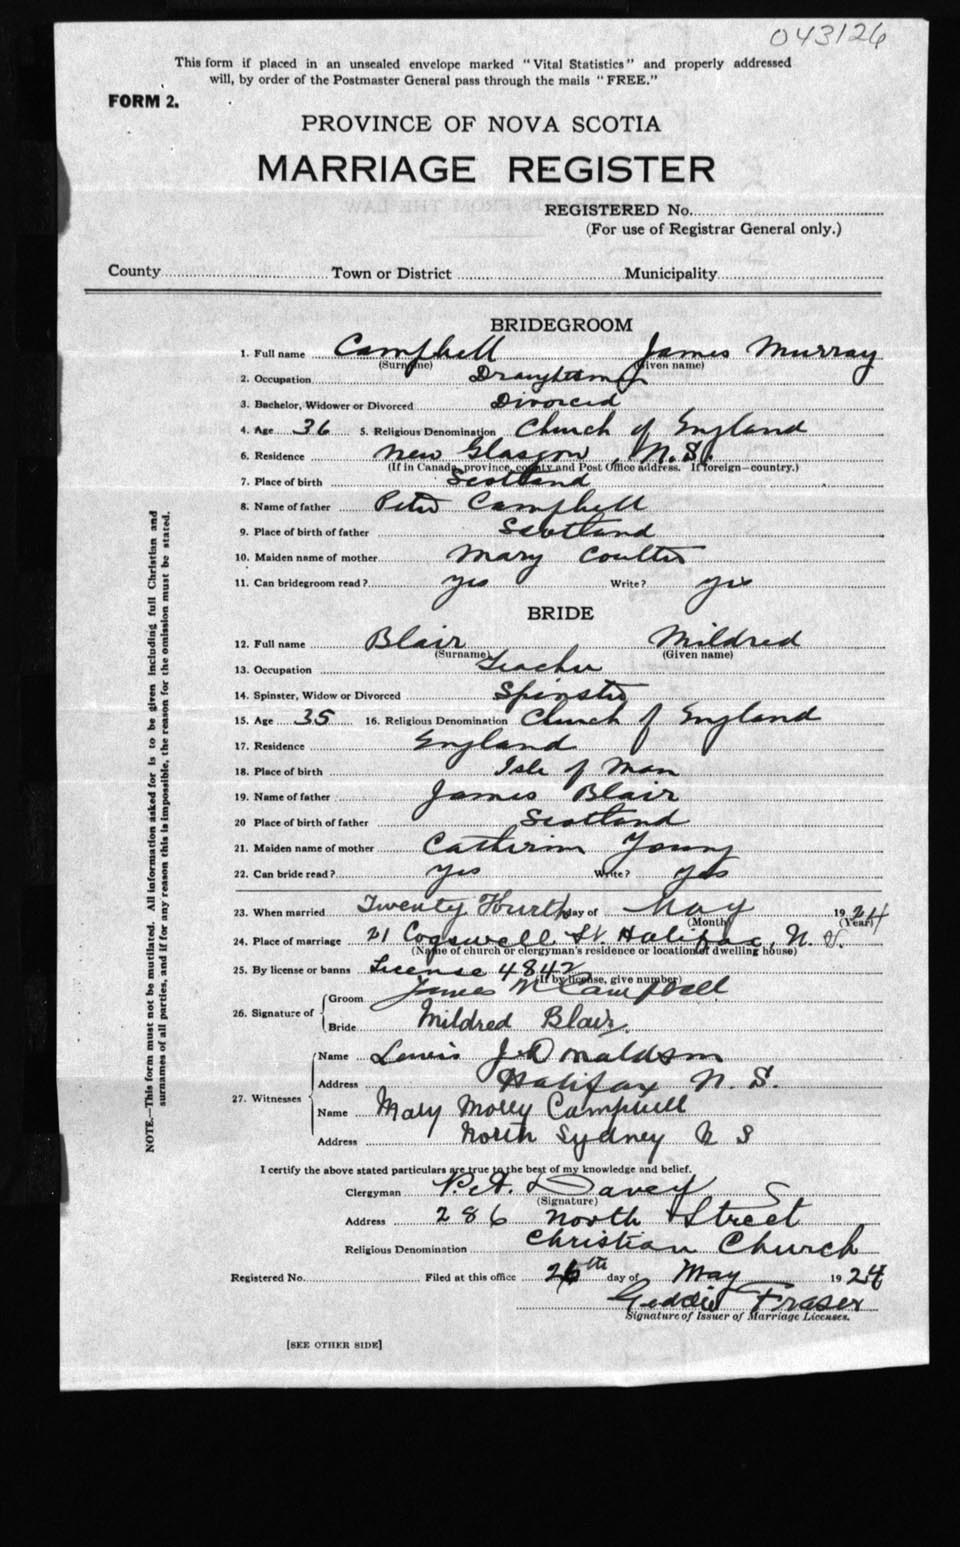 043126
This form if placed in an unsealed envelope marked "Vital Statistics" and properly addressed
will, by order of the Postmaster General pass through the mails "FREE."
FORM 2.
PROVINCE OF NOVA SCOTIA
MARRIAGE REGISTER
REGISTERED No.
(For use of Registrar General only.)
County Town or District Municipality
BRIDEGROOM
1. Full name Campbell James Murray
(Surname) (Given name)
2. Occupation
3. Bachelor, Widower or Divorced Divorced
4. Age 36 5. Religious Denomination Church of England
6. Residence New Glasgow, N.S.
(If in Canada, province, county and Post Office address. If foreign—country.)
7. Place of birth Scotland
8. Name of father Peter Campbell
9. Place of birth of father Scotland
10. Maiden name of mother Mary Coulter
11. Can bridegroom read? yes Write? yes
BRIDE
12. Full name Blair Mildred
(Surname) (Given name)
13. Occupation Teacher
14. Spinster, Widow or Divorced Spinster
15. Age 35 16. Religious Denomination Church of England
17. Residence England
18. Place of birth Isle of Man
19. Name of father James Blair
20 Place of birth of father Scotland
21. Maiden name of mother Catherine Young
22. Can bride read? yes Write? yes
23. When married Twenty Fourth day of May 1924
(Month) (Year)
24. Place of marriage 21 Cogswell St. Halifax, N.S.
(Name of church or clergyman's residence or location of dwelling house)
25. By license or banns License 4842
(If by license, give number)
26. Signature of Groom James M Campbell
Bride Mildred Blair
27. Witnesses Name Lewis J. Donaldson
Address Halifax N. S.
Name Mary Morey Campbell
Address North Sydney N S
I certify the above stated particulars are true to the best of my knowledge and belief.
Clergyman P.A. Davey
(Signature)
Address 286 North Street
Religious Denomination Christian Church
Registered No. Filed at this office 26th day of May 1924
Geddie Fraser
Signature of Issuer of Marriage Licenses.
[SEE OTHER SIDE]
NOTE.—This form must not be mutilated. All information asked for is to be given including full Christian and
surnames of all parties, and if for any reason this is impossible, the reason for the omission must be stated.